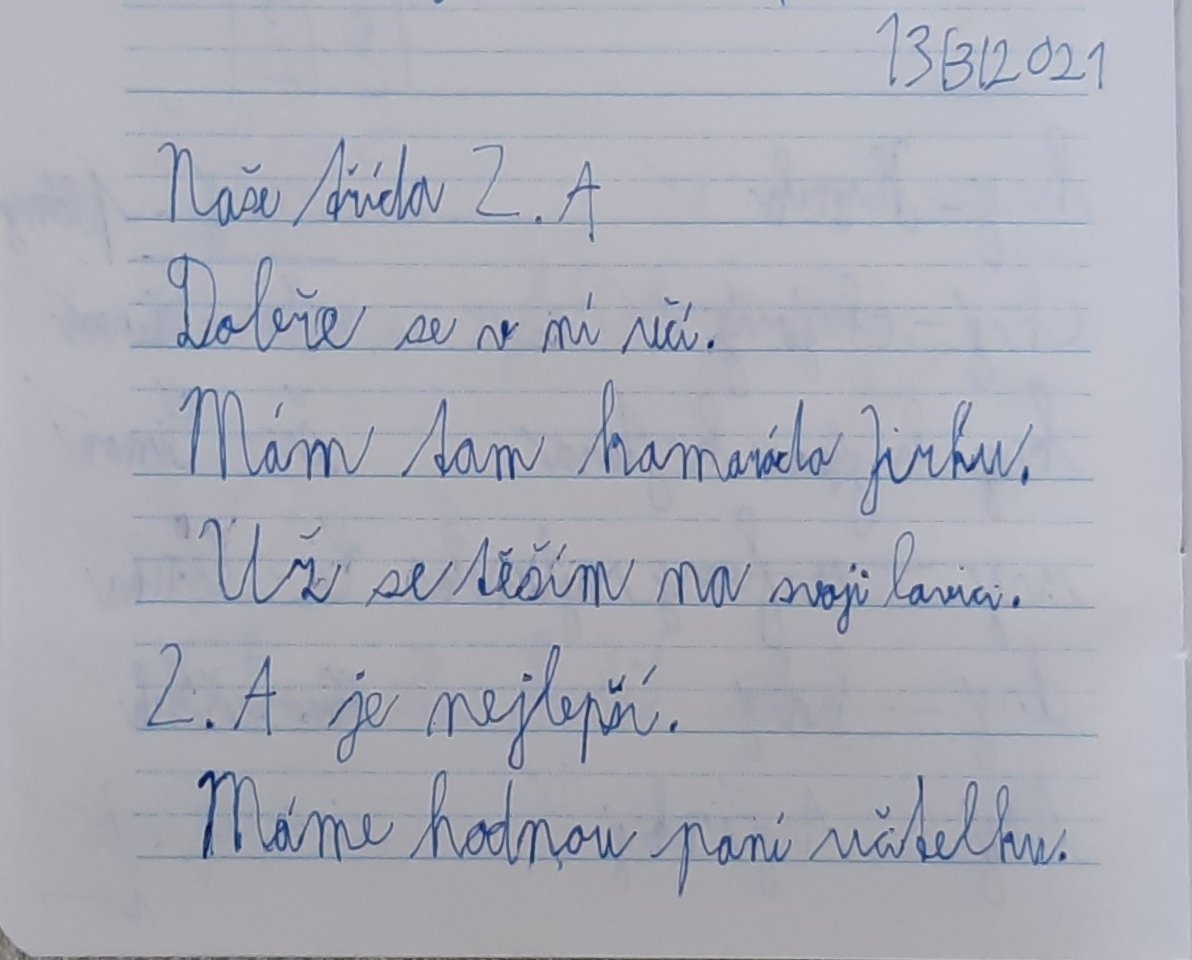 13/3/2021
Naše třída 2. A
Dobře se v ní učí.
Mám tam kamaráda Jirku.
Už se těším na svoji lavici.
2. A je nejlepší.
Máme hodnou paní učitelku.